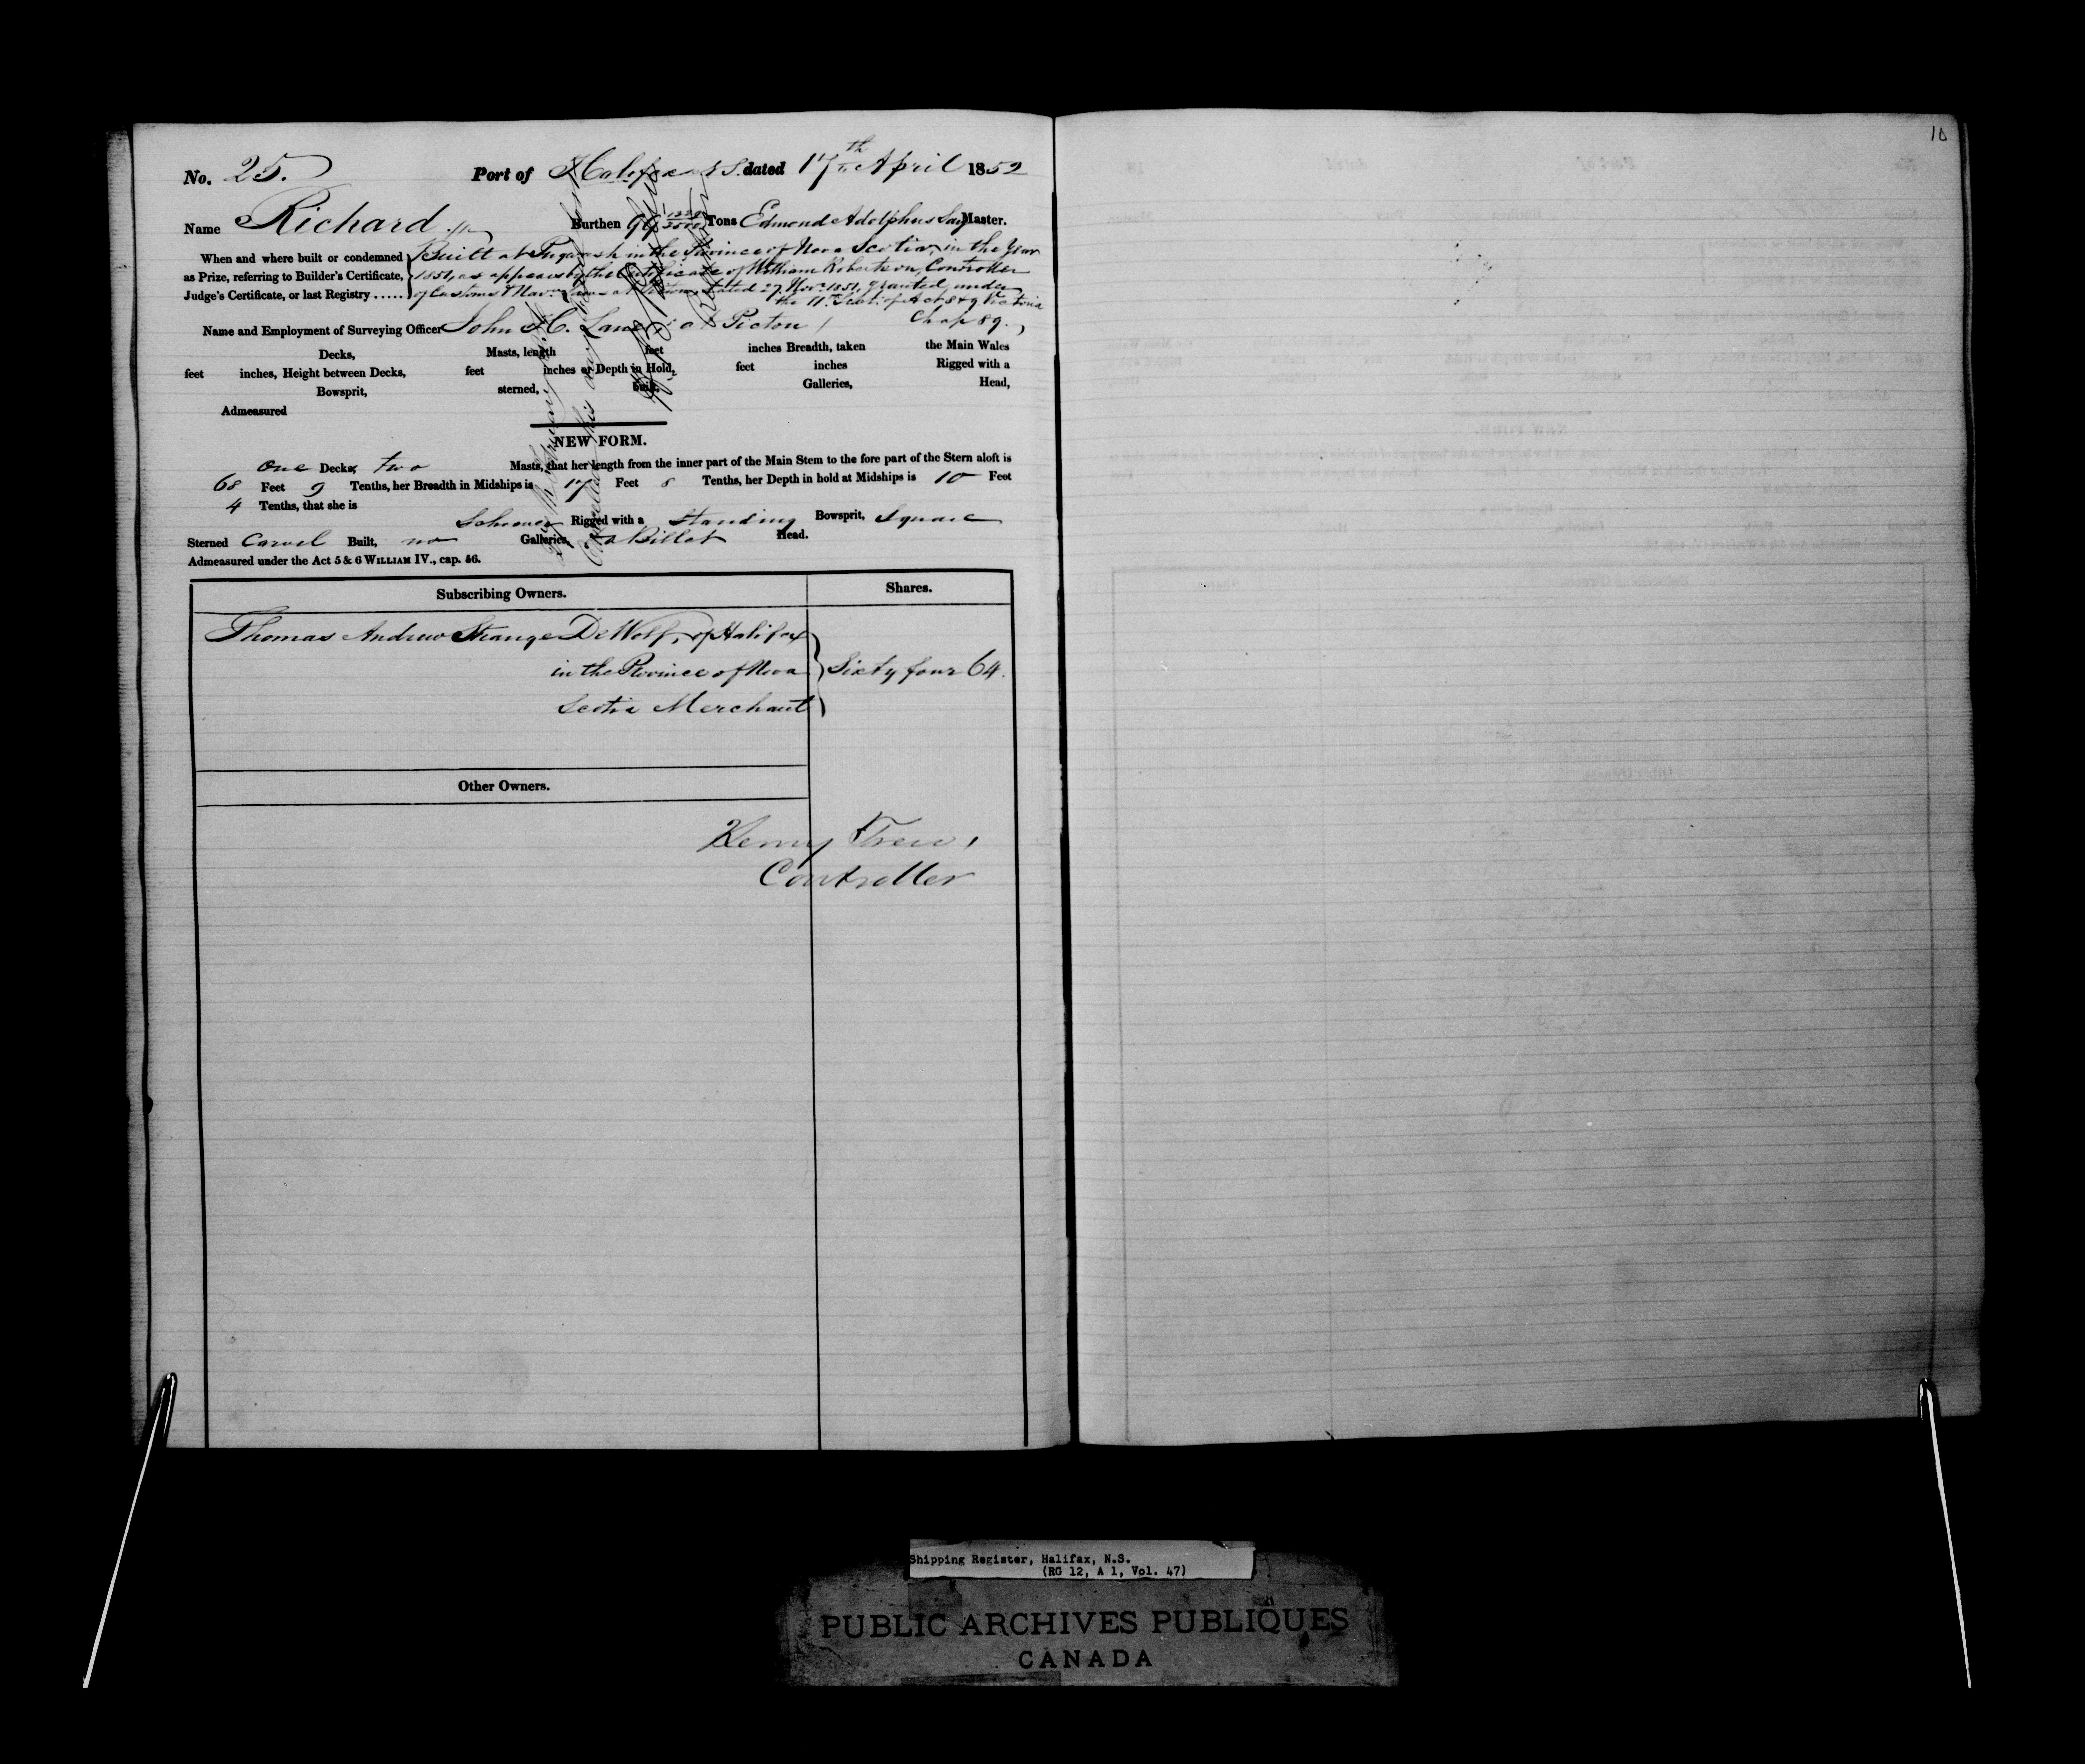 10
No. 25. Port of Halifax N S. dated 17th April 1852
Name Richard Burthen Tons Edmond Adolphus Master.
When and where built or condemned
as Prize, referring to Builder's Certificate,
Judge's Certificate, or last Registry .....
Built at Pugwash in the Province of Nova Scotia, in the Year
1851, as appears by the Certificate of William Robertson, Controller
of Customs & Navn Laws at Pictou, dated 27 Novr. 1851, granted under
the 11th Sect. of Act 8 & 9 Victoria
Chap 89.
Name and Employment of Surveying Officer John H. Lane at Pictou
Decks, Masts, length feet inches Breadth, taken the Main Wales
feet inches, Height between Decks, feet inches or Depth in Hold, feet inches Rigged with a
Bowsprit, sterned, built, Galleries, Head,
Admeasured
NEW FORM.
One Decks, two Masts, that her length from the inner part of the Main Stem to the fore part of the Stern aloft is
68 Feet 9 Tenths, her Breadth in Midships is 17 Feet 8 Tenths, her Depth in hold at Midships is 10 Feet
4 Tenths, that she is
Schooner Rigged with a Standing Bowsprit, Square
Sterned Carvel Built, no Galleries, a Billet Head.
Admeasured under the Act 5 & 6 WILLIAM IV., cap. 56.
Subscribing Owners. Shares.
Thomas Andrew Strange DeWolf, of Halifax
in the Province of Nova Sixty four 64.
Scotia Merchant
Other Owners.
Henry Trew,
Controller
Shipping Register, Halifax, N.S.
(RG 12, A 1, Vol. 47)
PUBLIC ARCHIVES PUBLIQUES
CANADA